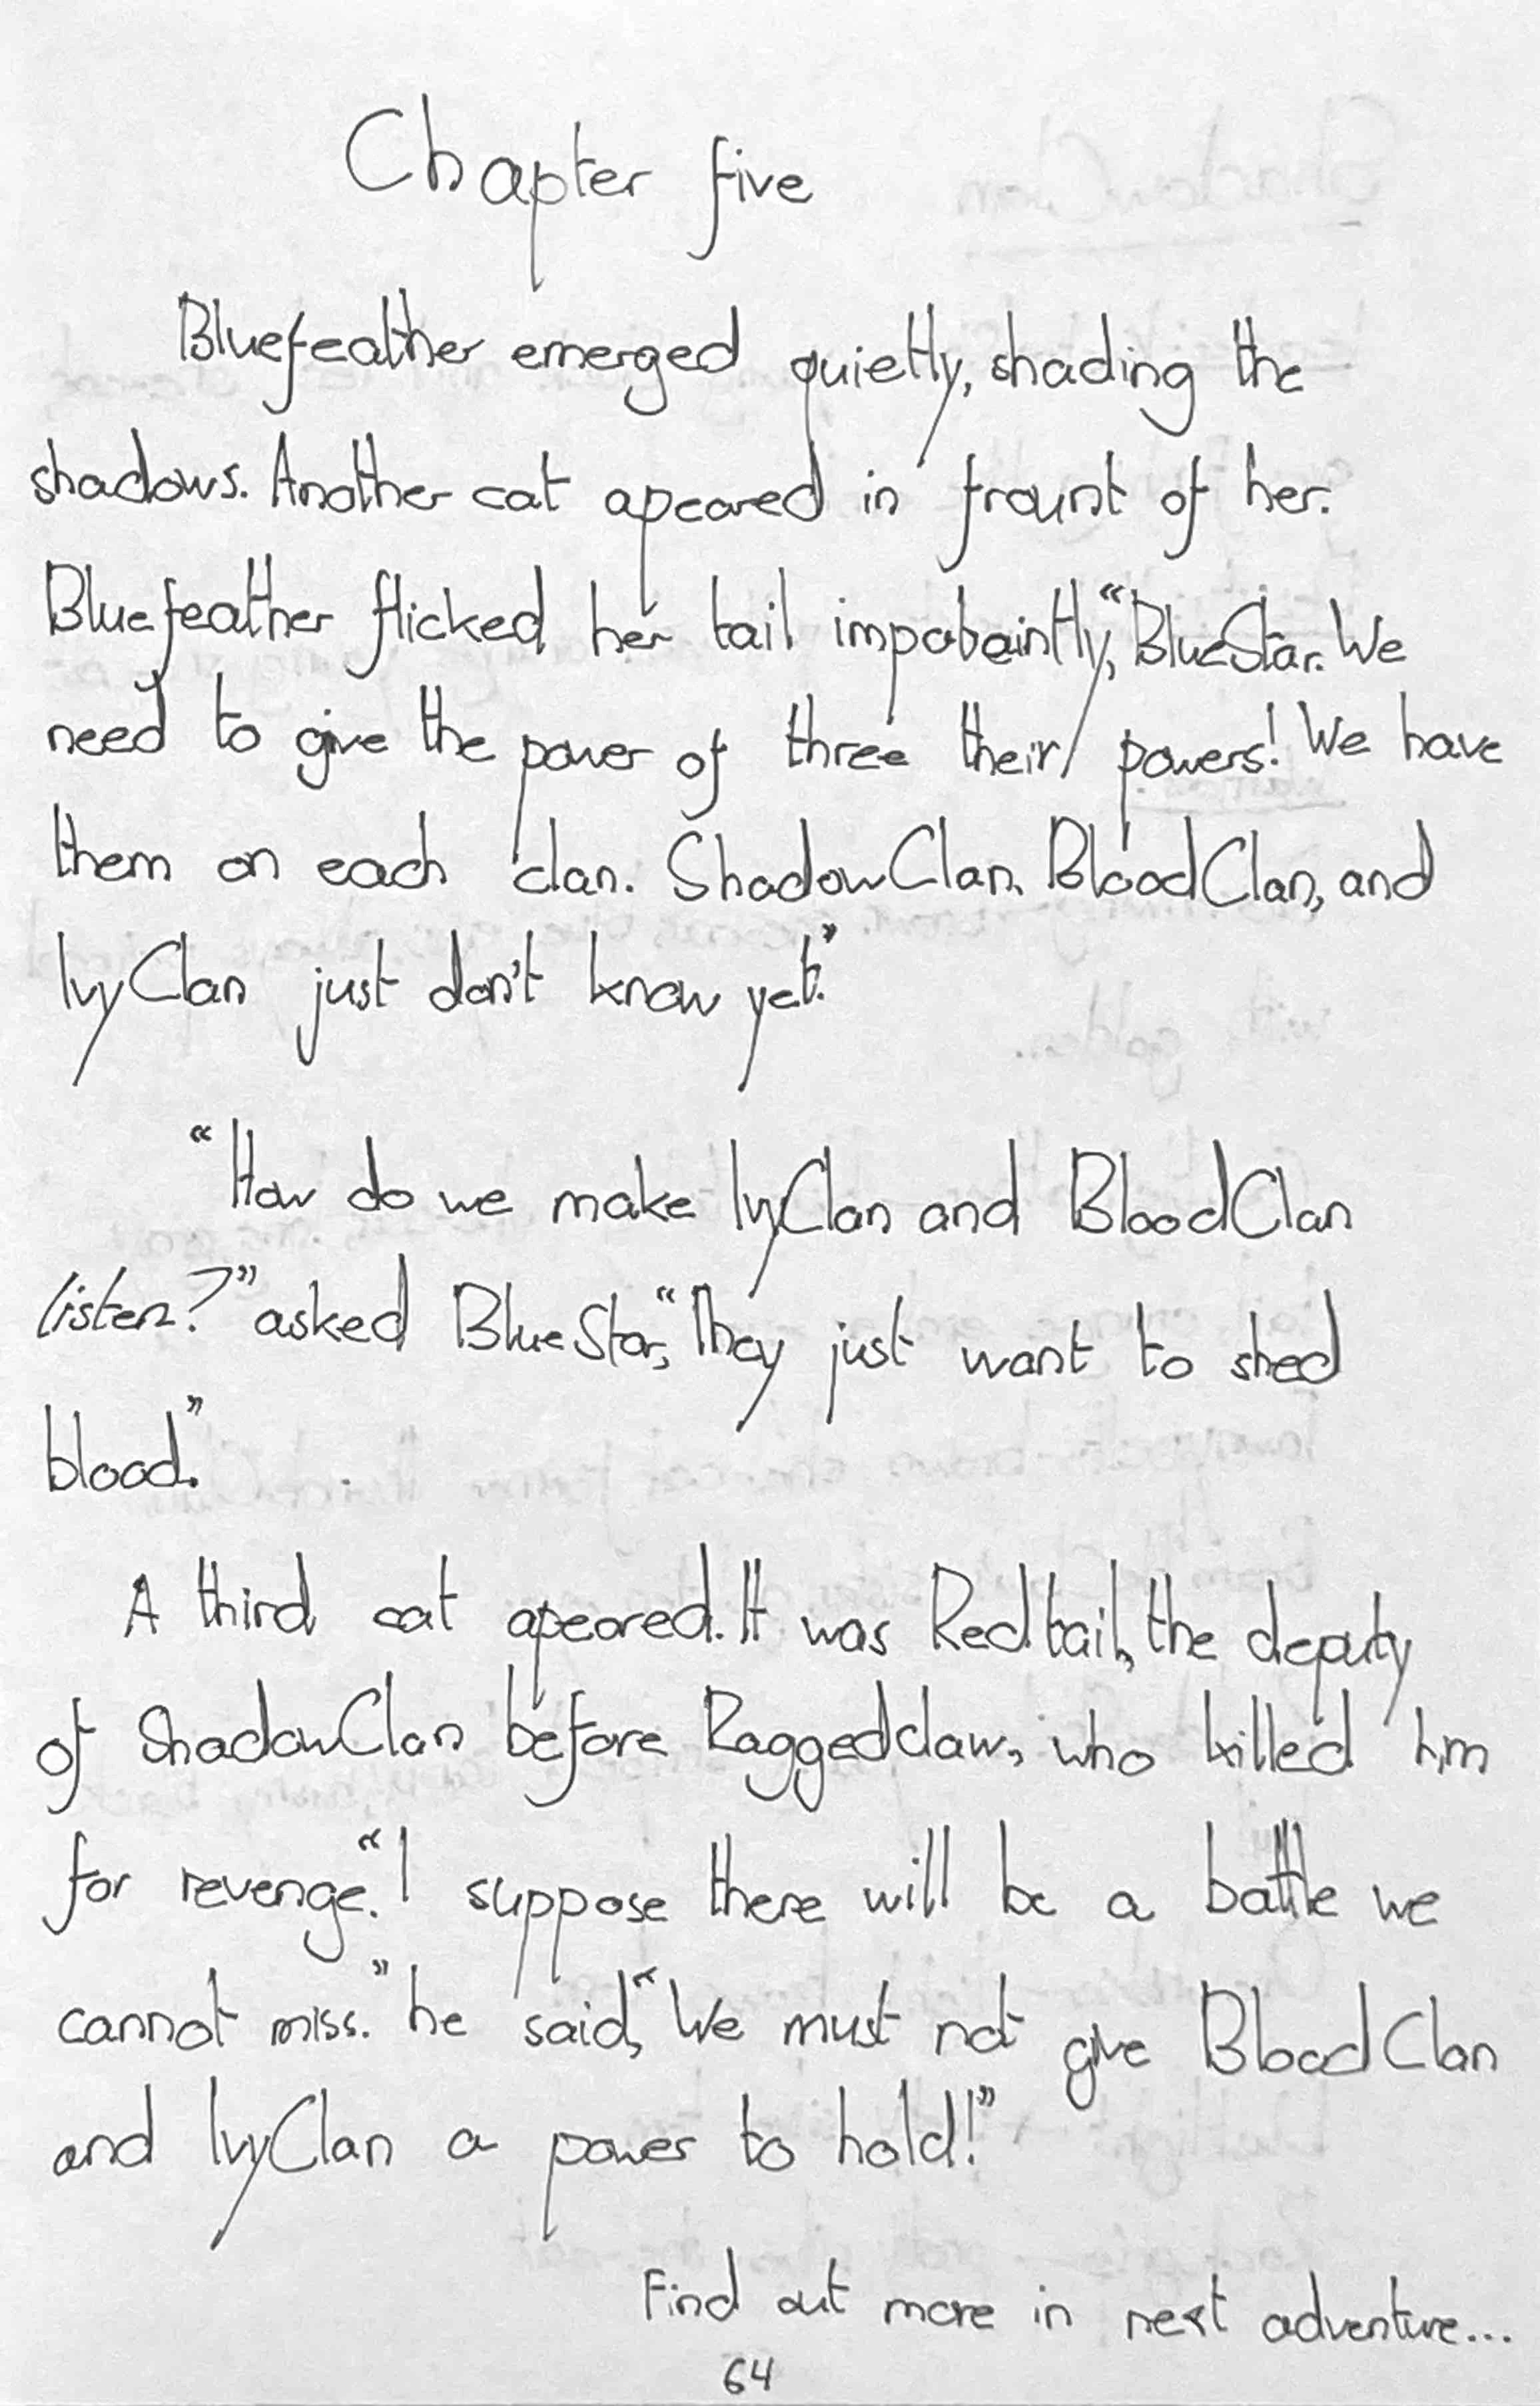 Chapter five
Bluefeather emerged quietly, shading the
shadows. Another cat apeared in frount of her.
Bluefeather flicked her tail impabaintly, “BlueStar. We
need to give the power of three their powers! We have
them on each clan. ShadowClan, BloodClan, and
IvyClan just don't know yet.”
“How do we make IvyClan and BloodClan
listen?” asked BlueStar, “They just want to shed
blood.”
A third cat apeared. It was Redtail, the deputy
of ShadowClan before Raggedclaw, who killed him
for revenge. “I suppose there will be a battle we
cannot miss.” he said, “We must not give BloodClan
and IvyClan a power to hold!”
Find out more in next adventure...
64